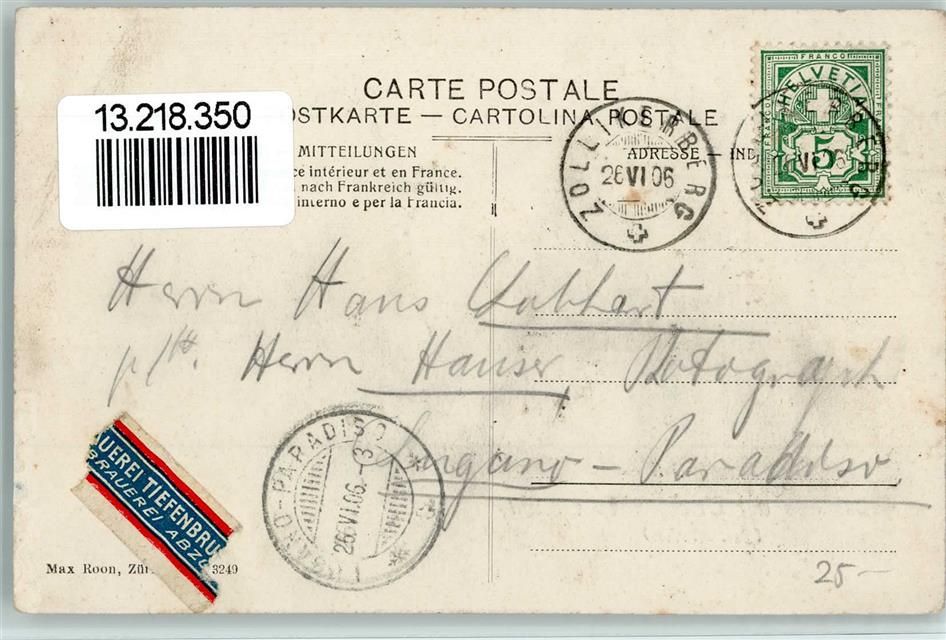 13.218.350
CARTE POSTALE
OSTKARTE — CARTOLINA POSTALE
MITTEILUNGEN
ADRESSE — IND
ce intérieur et en France.
nach Frankreich gültig.
interno e per la Francia.
ZOLLIKERBERG
26 VI 06
FRANCO
HELVETIA
5
VI 06
Herrn Hans
p/A. Herrn Hauser Photograph
Lugano - Paradiso
LUGANO-PARADISO
26 VI 06.-3
AUEREI TIEFENBRU
BRAUEREI ABZ
Max Roon, Zür 3249
25-